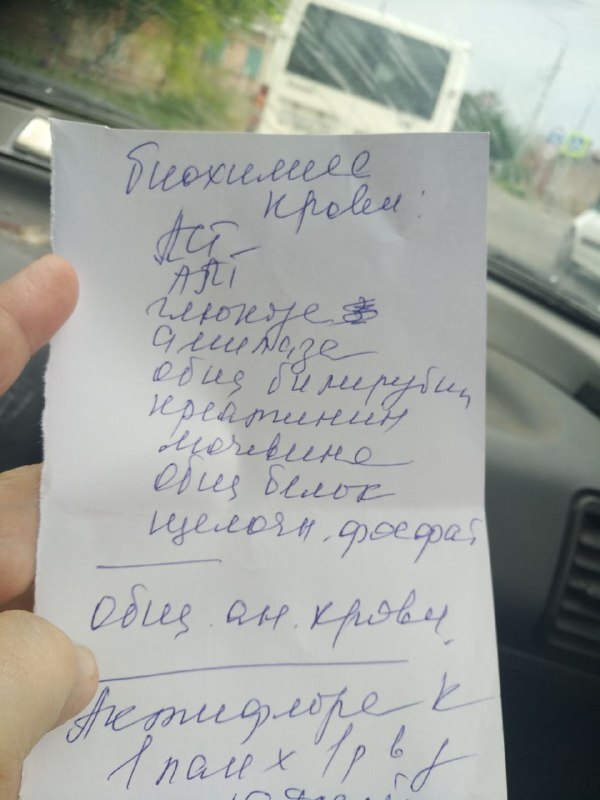 Биохимия
крови:
АСТ
АЛТ
глюкоза
амилаза
общ билирубин
креатинин
мочевина
общ белок
щелочн. фосфат
общ. ан. крови
Актифлора К
1 пак х 1р в